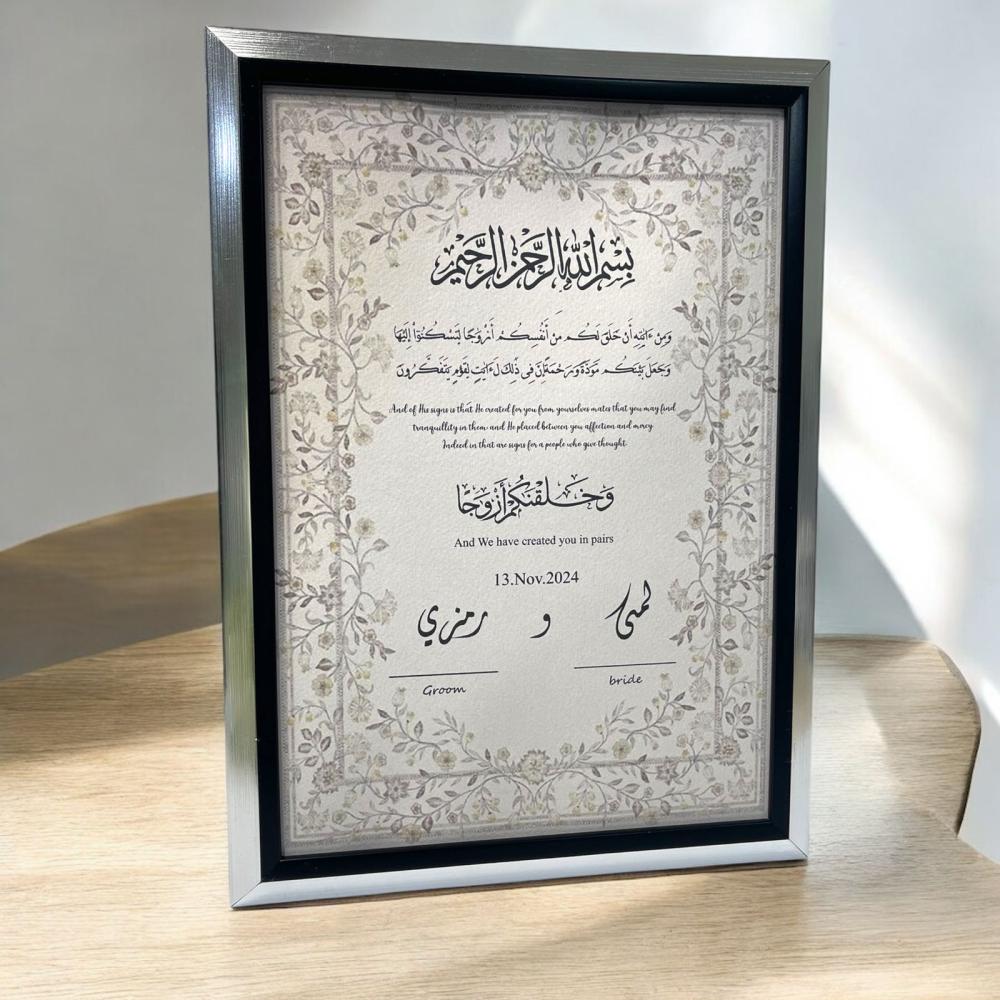 بِسْمِ اللهِ الرَّحْمٰنِ الرَّحِيْمِ
وَمِنْ ءَايَٰتِهِ أَنْ خَلَقَ لَكُم مِنْ أَنْفُسِكُمْ أَزْوَٰجًا لِتَسْكُنُوٓا۟ إِلَيْهَا
وَجَعَلَ بَيْنَكُم مَوَدَّةً وَرَحْمَةً إِنَّ فِى ذَٰلِكَ لَءَايَٰتٍ لِقَوْمٍ يَتَفَكَّرُونَ
And of His signs is that He created for you from yourselves mates that you may find
tranquillity in them: and He placed between you affection and mercy.
Indeed in that are signs for a people who give thought.
وَخَلَقْنَٰكُمْ أَزْوَٰجًا
And We have created you in pairs
13.Nov.2024
لمى و رمزي
Groom bride